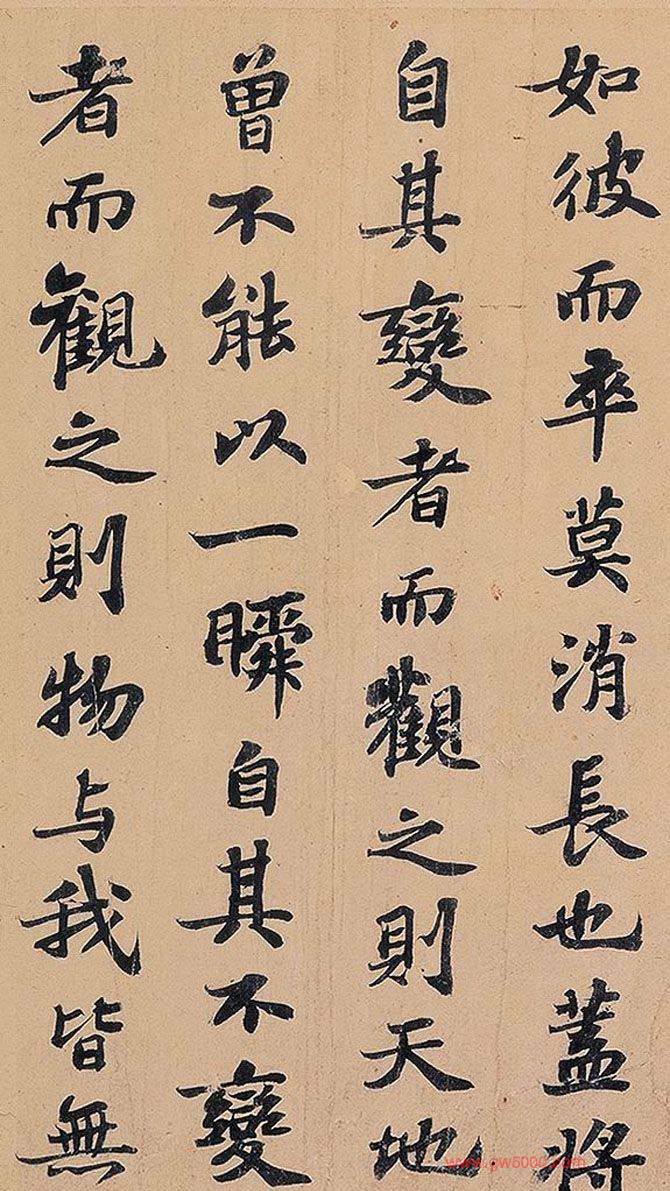 如彼而卒莫消長也蓋將
自其變者而觀之則天地
曾不能以一瞬自其不變
者而觀之則物与我皆無